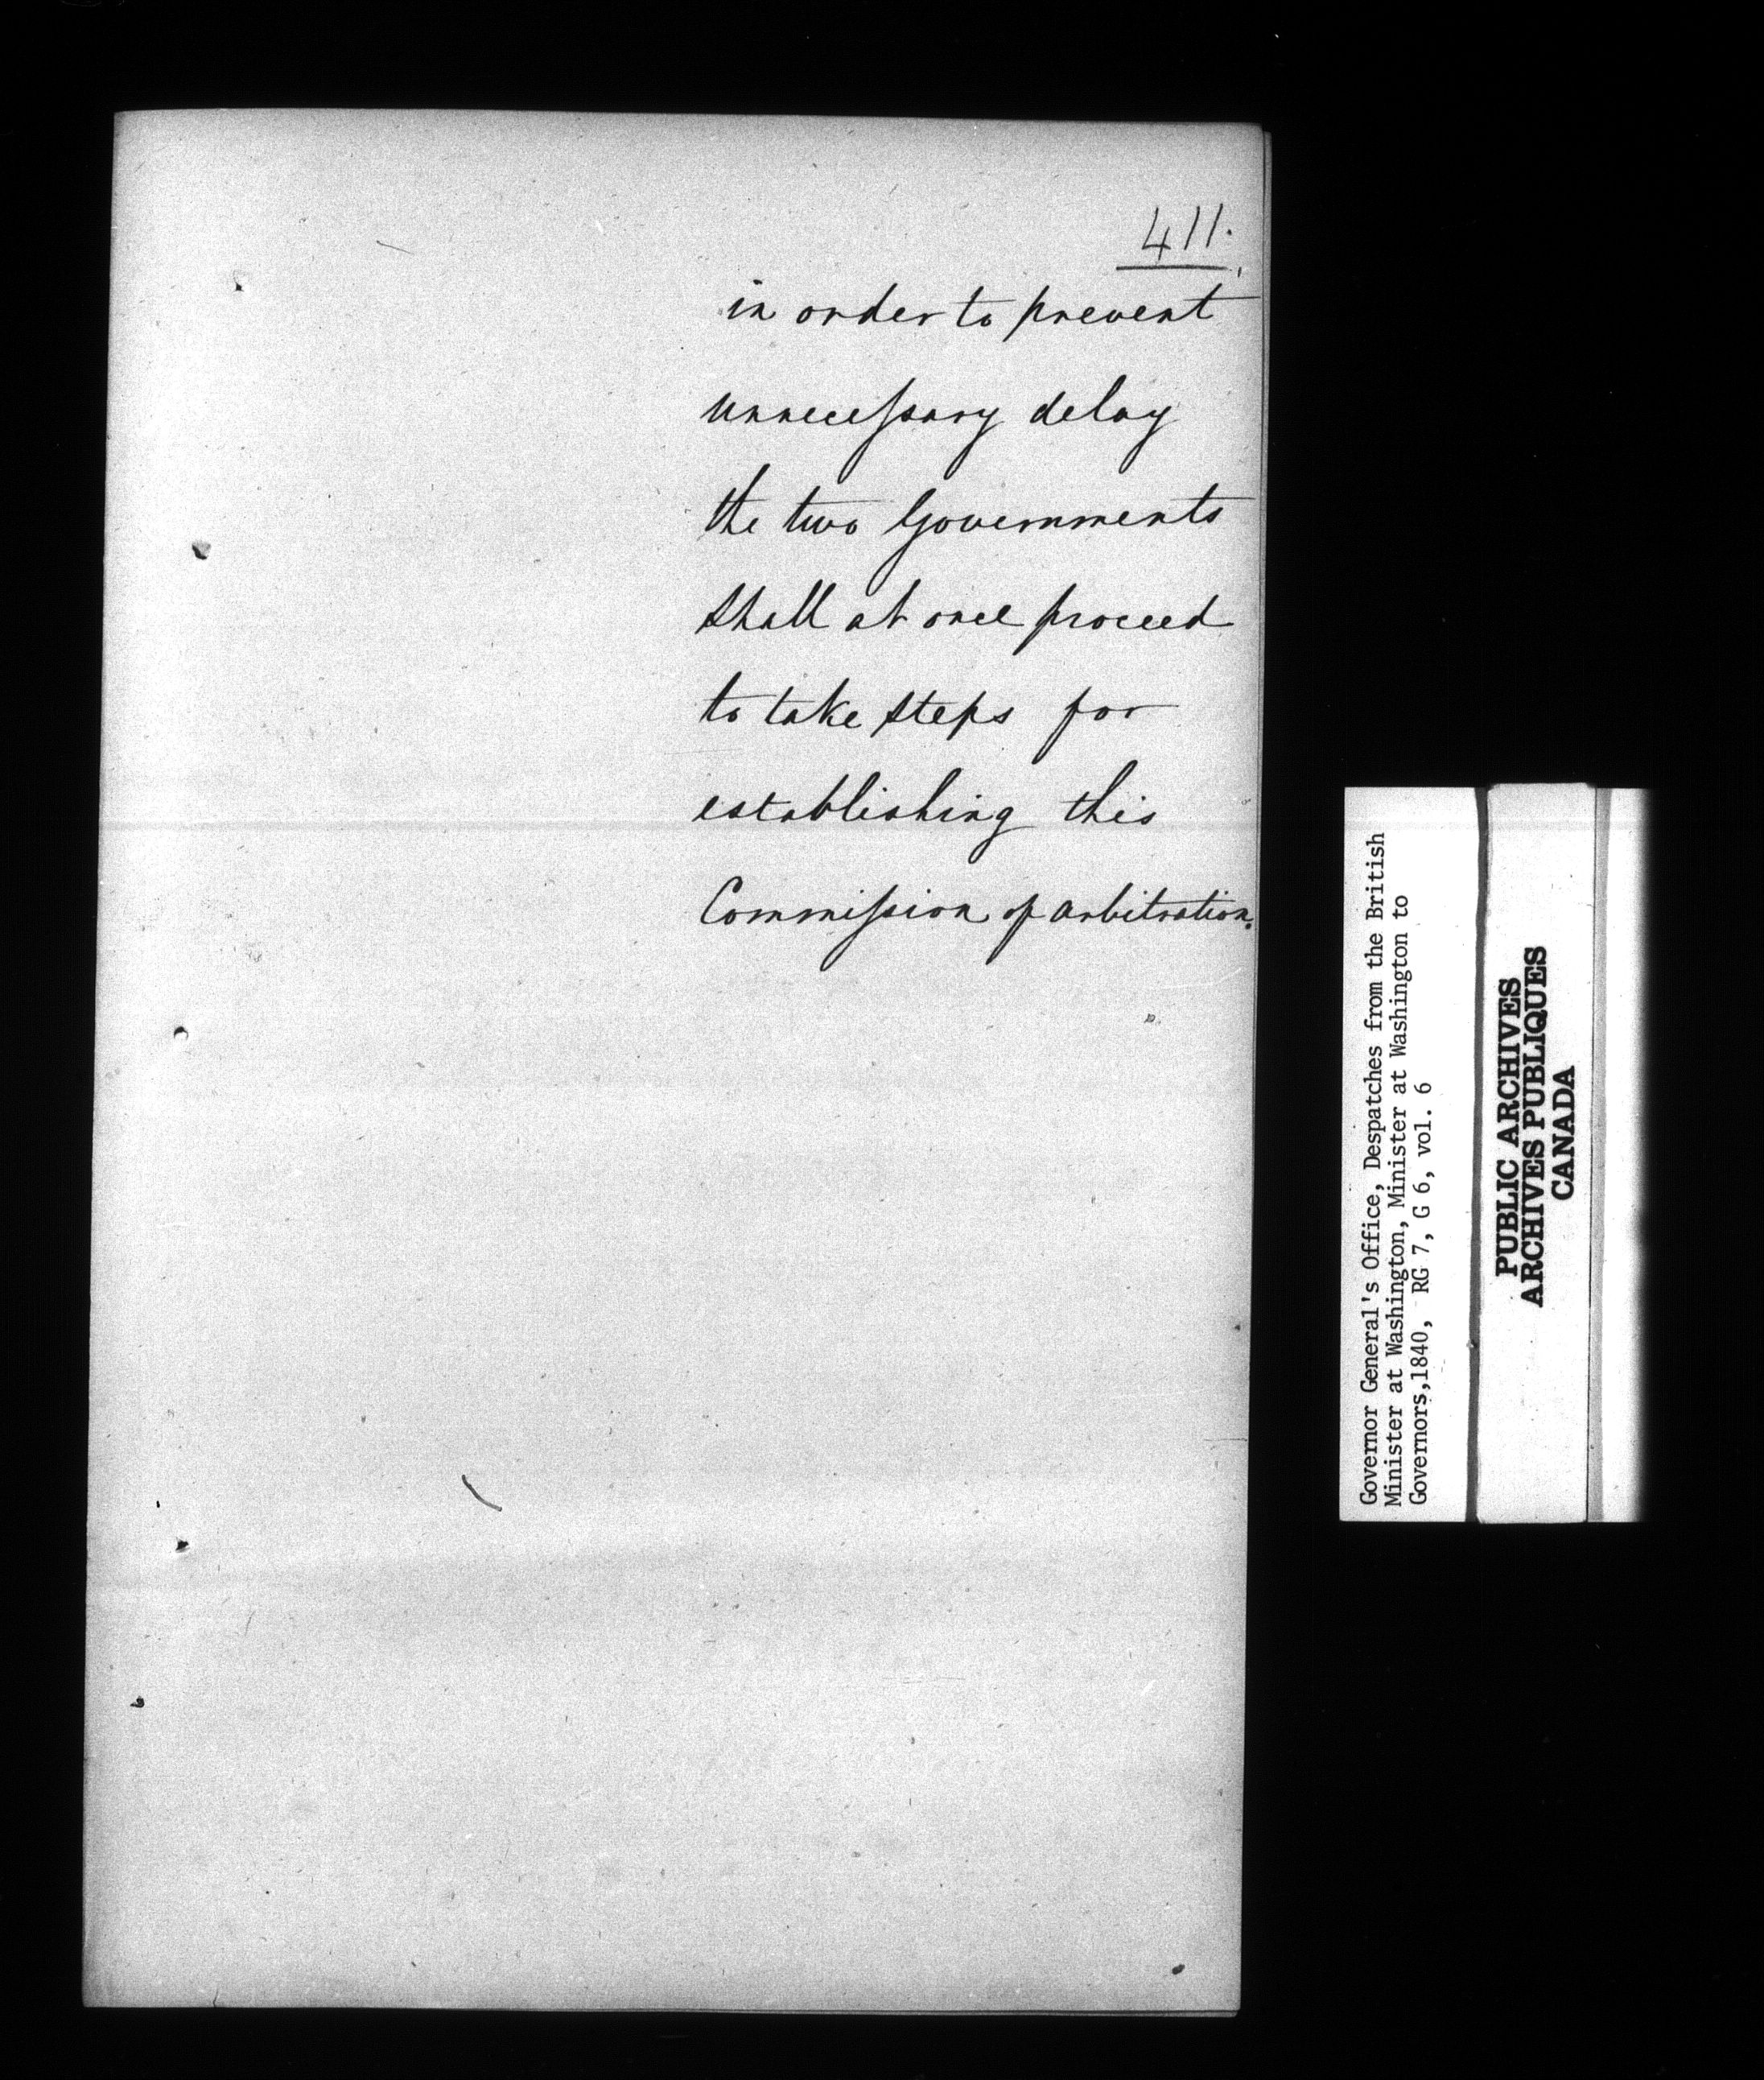 411.
in order to prevent
unnecessary delay
the two Governments
shall at once proceed
to take steps for
establishing this
Commission of arbitration.
Governor General's Office, Despatches from the British
Minister at Washington, Minister at Washington to
Governors,1840, RG 7, G 6, vol. 6
PUBLIC ARCHIVES
ARCHIVES PUBLIQUES
CANADA